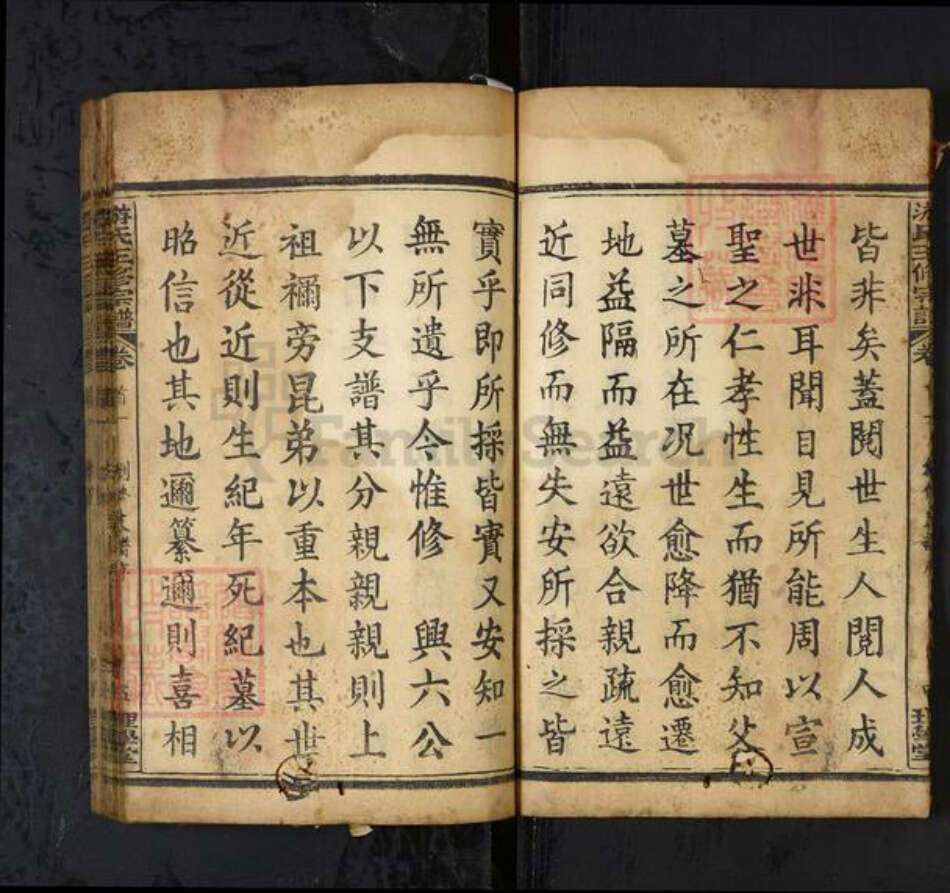 皆非矣蓋閱世生人閱人成
世非耳聞目見所能周以宣
聖之仁孝性生而猶不知父
墓之所在況世愈降而愈遷
地益隔而益遠欲合親疏遠
近同修而無失安所採之皆
實乎即所採皆實又安知一
無所遺乎今惟修　興六公
以下支譜其分親親親則上
祖禰旁昆弟以重本也其世
近從近則生紀年死紀墓以
昭信也其地邇纂邇則喜相
游氏三修宗譜
卷
理學堂
游氏三修宗譜
卷首
理學堂
FamilySearch